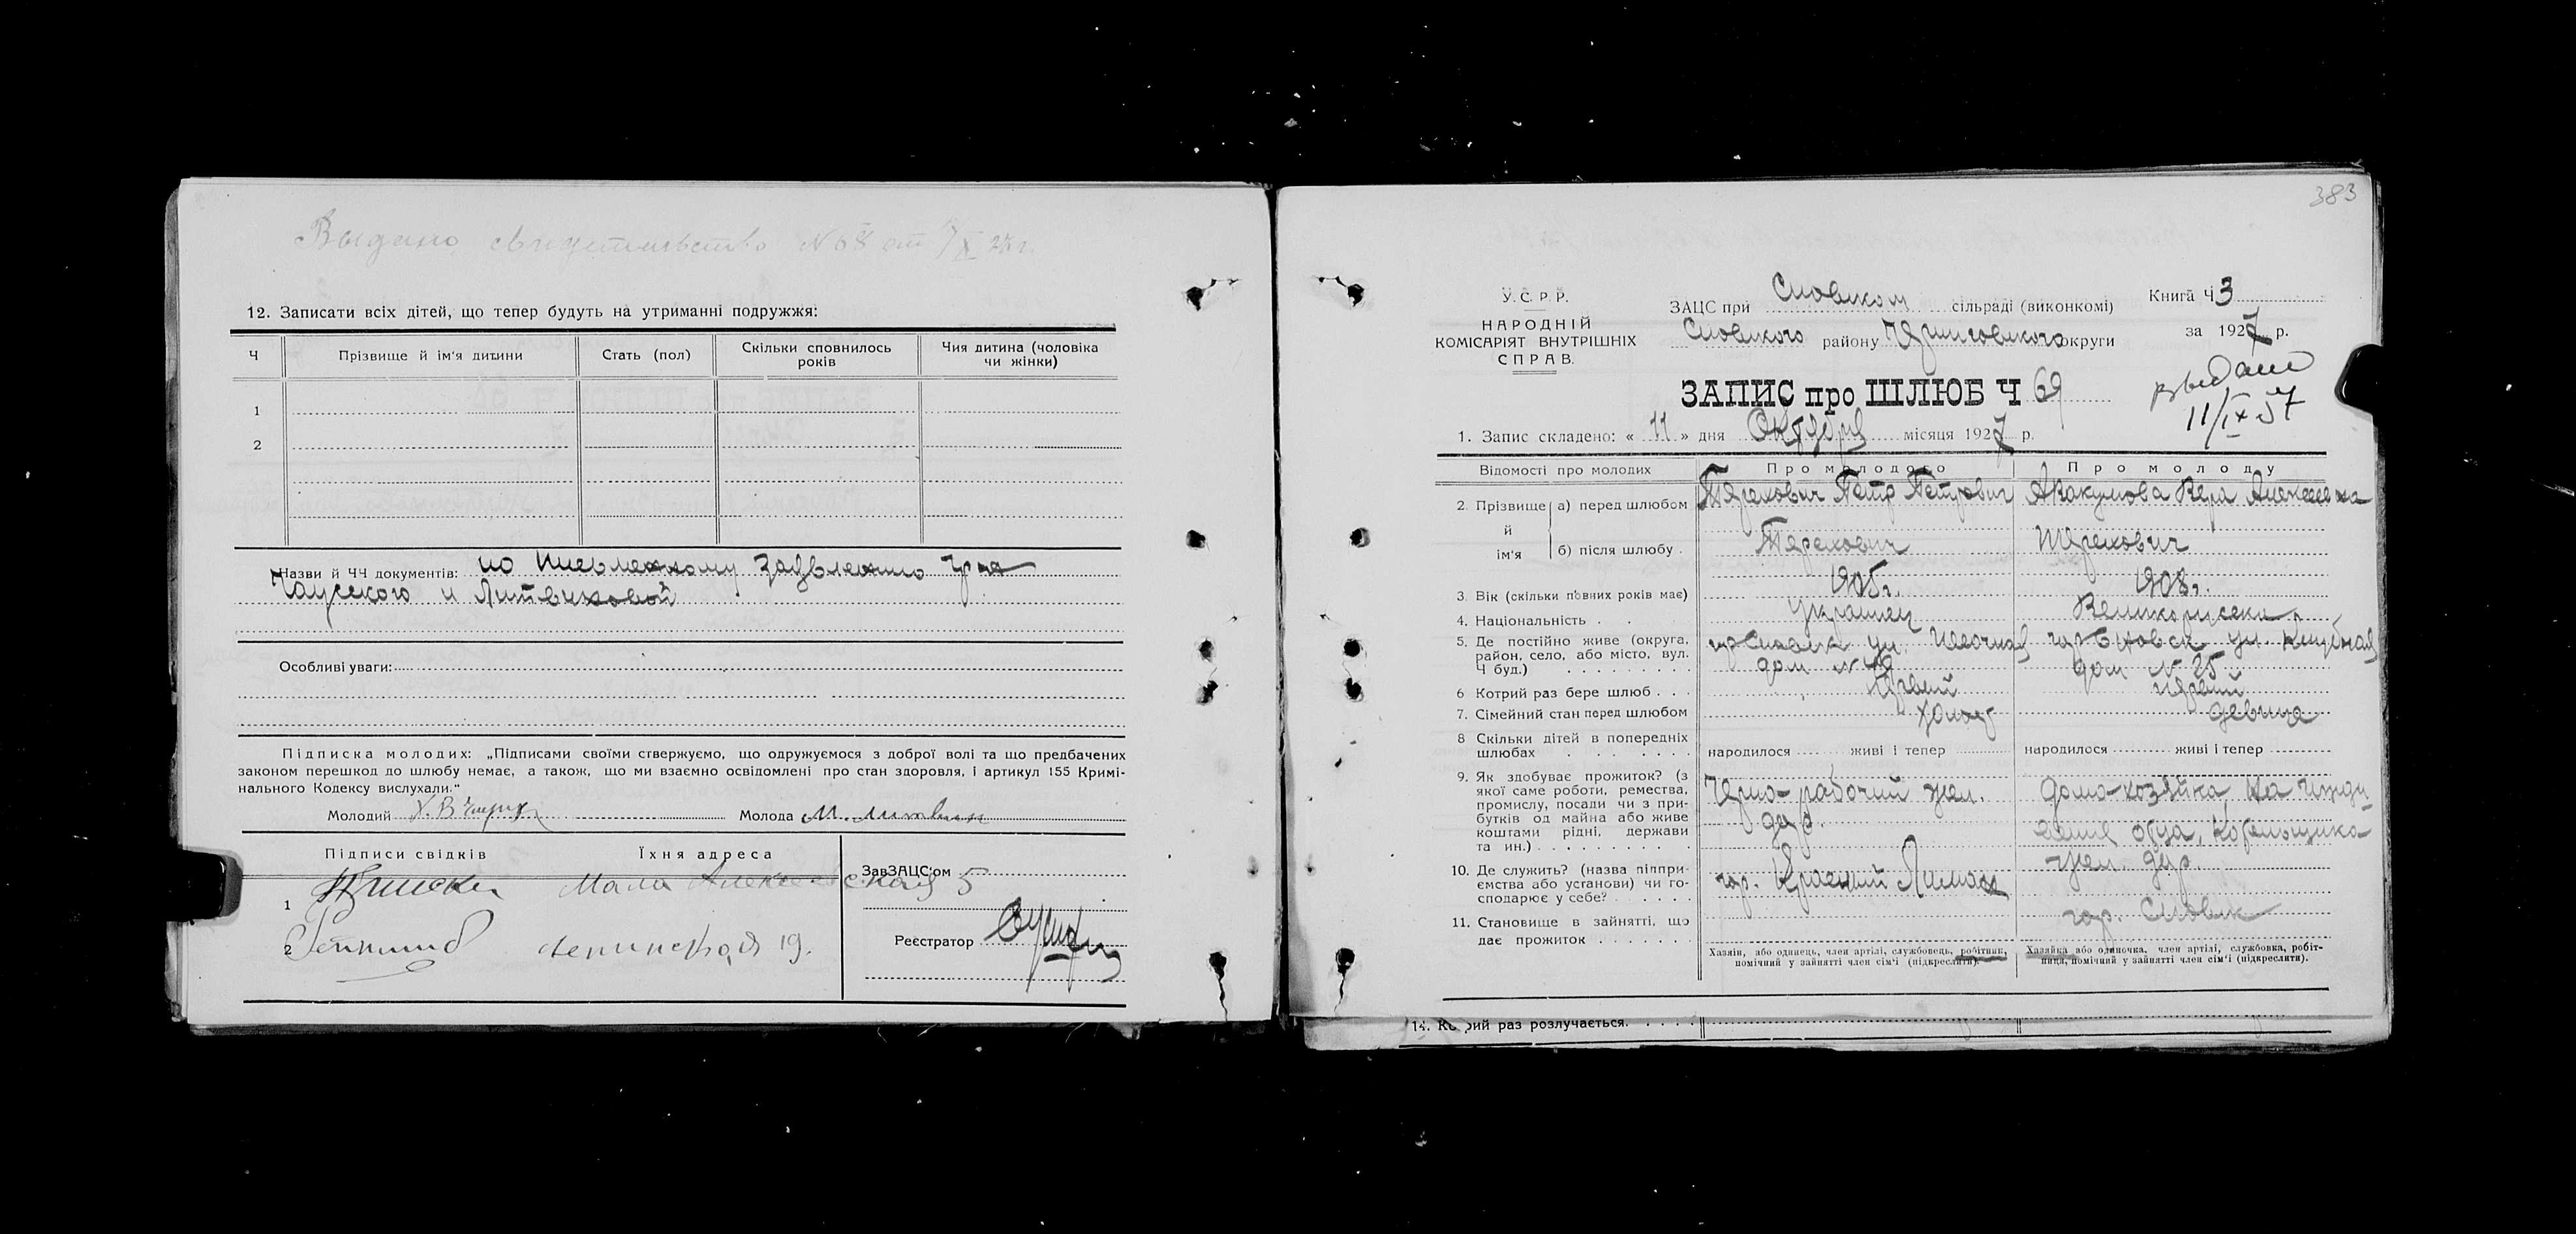 Выдано свидетельство N 68 от 7/X 27 г.
12. Записати всіх дітей, що тепер будуть на утриманні подружжя:
Ч Прізвище й ім'я дитини Стать (пол) Скільки сповнилось років Чия дитина (чоловіка чи жінки)
1
2
Назви й ЧЧ документів: по письменному
и Литвиновой
Особливі уваги:
Підписка молодих: „Підписами своїми ствержуємо, що одружуємося з доброї волі та що предбачених
законом перешкод до шлюбу немає, а також, що ми взаємно освідомлені про стан здоровля, і артикул 155 Кримі-
нального Кодексу вислухали."
Молодий Молода М. Литвин
Підписи свідків Їхня адреса
ЗавЗАЦС'ом
1 Мало Алексеевская 5
2 Ленинская 19.
Реєстратор
383
У. С. Р. Р.
НАРОДНІЙ
КОМІСАРІЯТ ВНУТРІШНІХ
СПРАВ.
ЗАЦС при Сновском сільраді (виконкомі)
Сновского району Черниговского округи
Книга Ч 3
за 1927 р.
ЗАПИС про ШЛЮБ Ч 69
выдано
11/IX 57
1. Запис складено: « 11 » дня Октября місяця 1927 р.
Відомості про молодих Про молодого Про молоду
2. Прізвище й ім'я а) перед шлюбом Терехович Петр Петрович Авакумова Вера
б) після шлюбу. Терехович Терехович
3. Вік (скільки повних років має) 1905г. 1908г.
4. Національність . . Украинец Великоруска
5. Де постійно живе (округа,
район, село, або місто, вул.
Ч буд.) гор Сновск ул. дом N гор Сновск ул дом N 25
6 Котрий раз бере шлюб . . . Первый Первый
7. Сімейний стан перед шлюбом холост девица
8 Скільки дітей в попередніх
шлюбах народилося живі і тепер народилося живі і тепер
9. Як здобуває прожиток? (з
якої саме роботи, ремества,
промислу, посади чи з при-
бутків од майна або живе
коштами рідні, держави
та ин.) Черно-рабочий жел. дор. Домо-хозяйка, на иждивении отца, котельщика жел. дор.
10. Де служить? (назва підпри-
ємства або установи) чи го-
сподарює у себе? гор. Красный Лиман гор. Сновск
11. Становище в зайнятті, що
дає прожиток
Хазяїн, або одинець, член артілі, службовець, робітник,
помічний у зайнятті член сім'ї (підкреслити).
Хазяйка або одиночка, член артілі, службовка, робіт-
ниця, помічний у зайнятті член сім'ї (підкреслити).
14. Котрий раз розлучається.